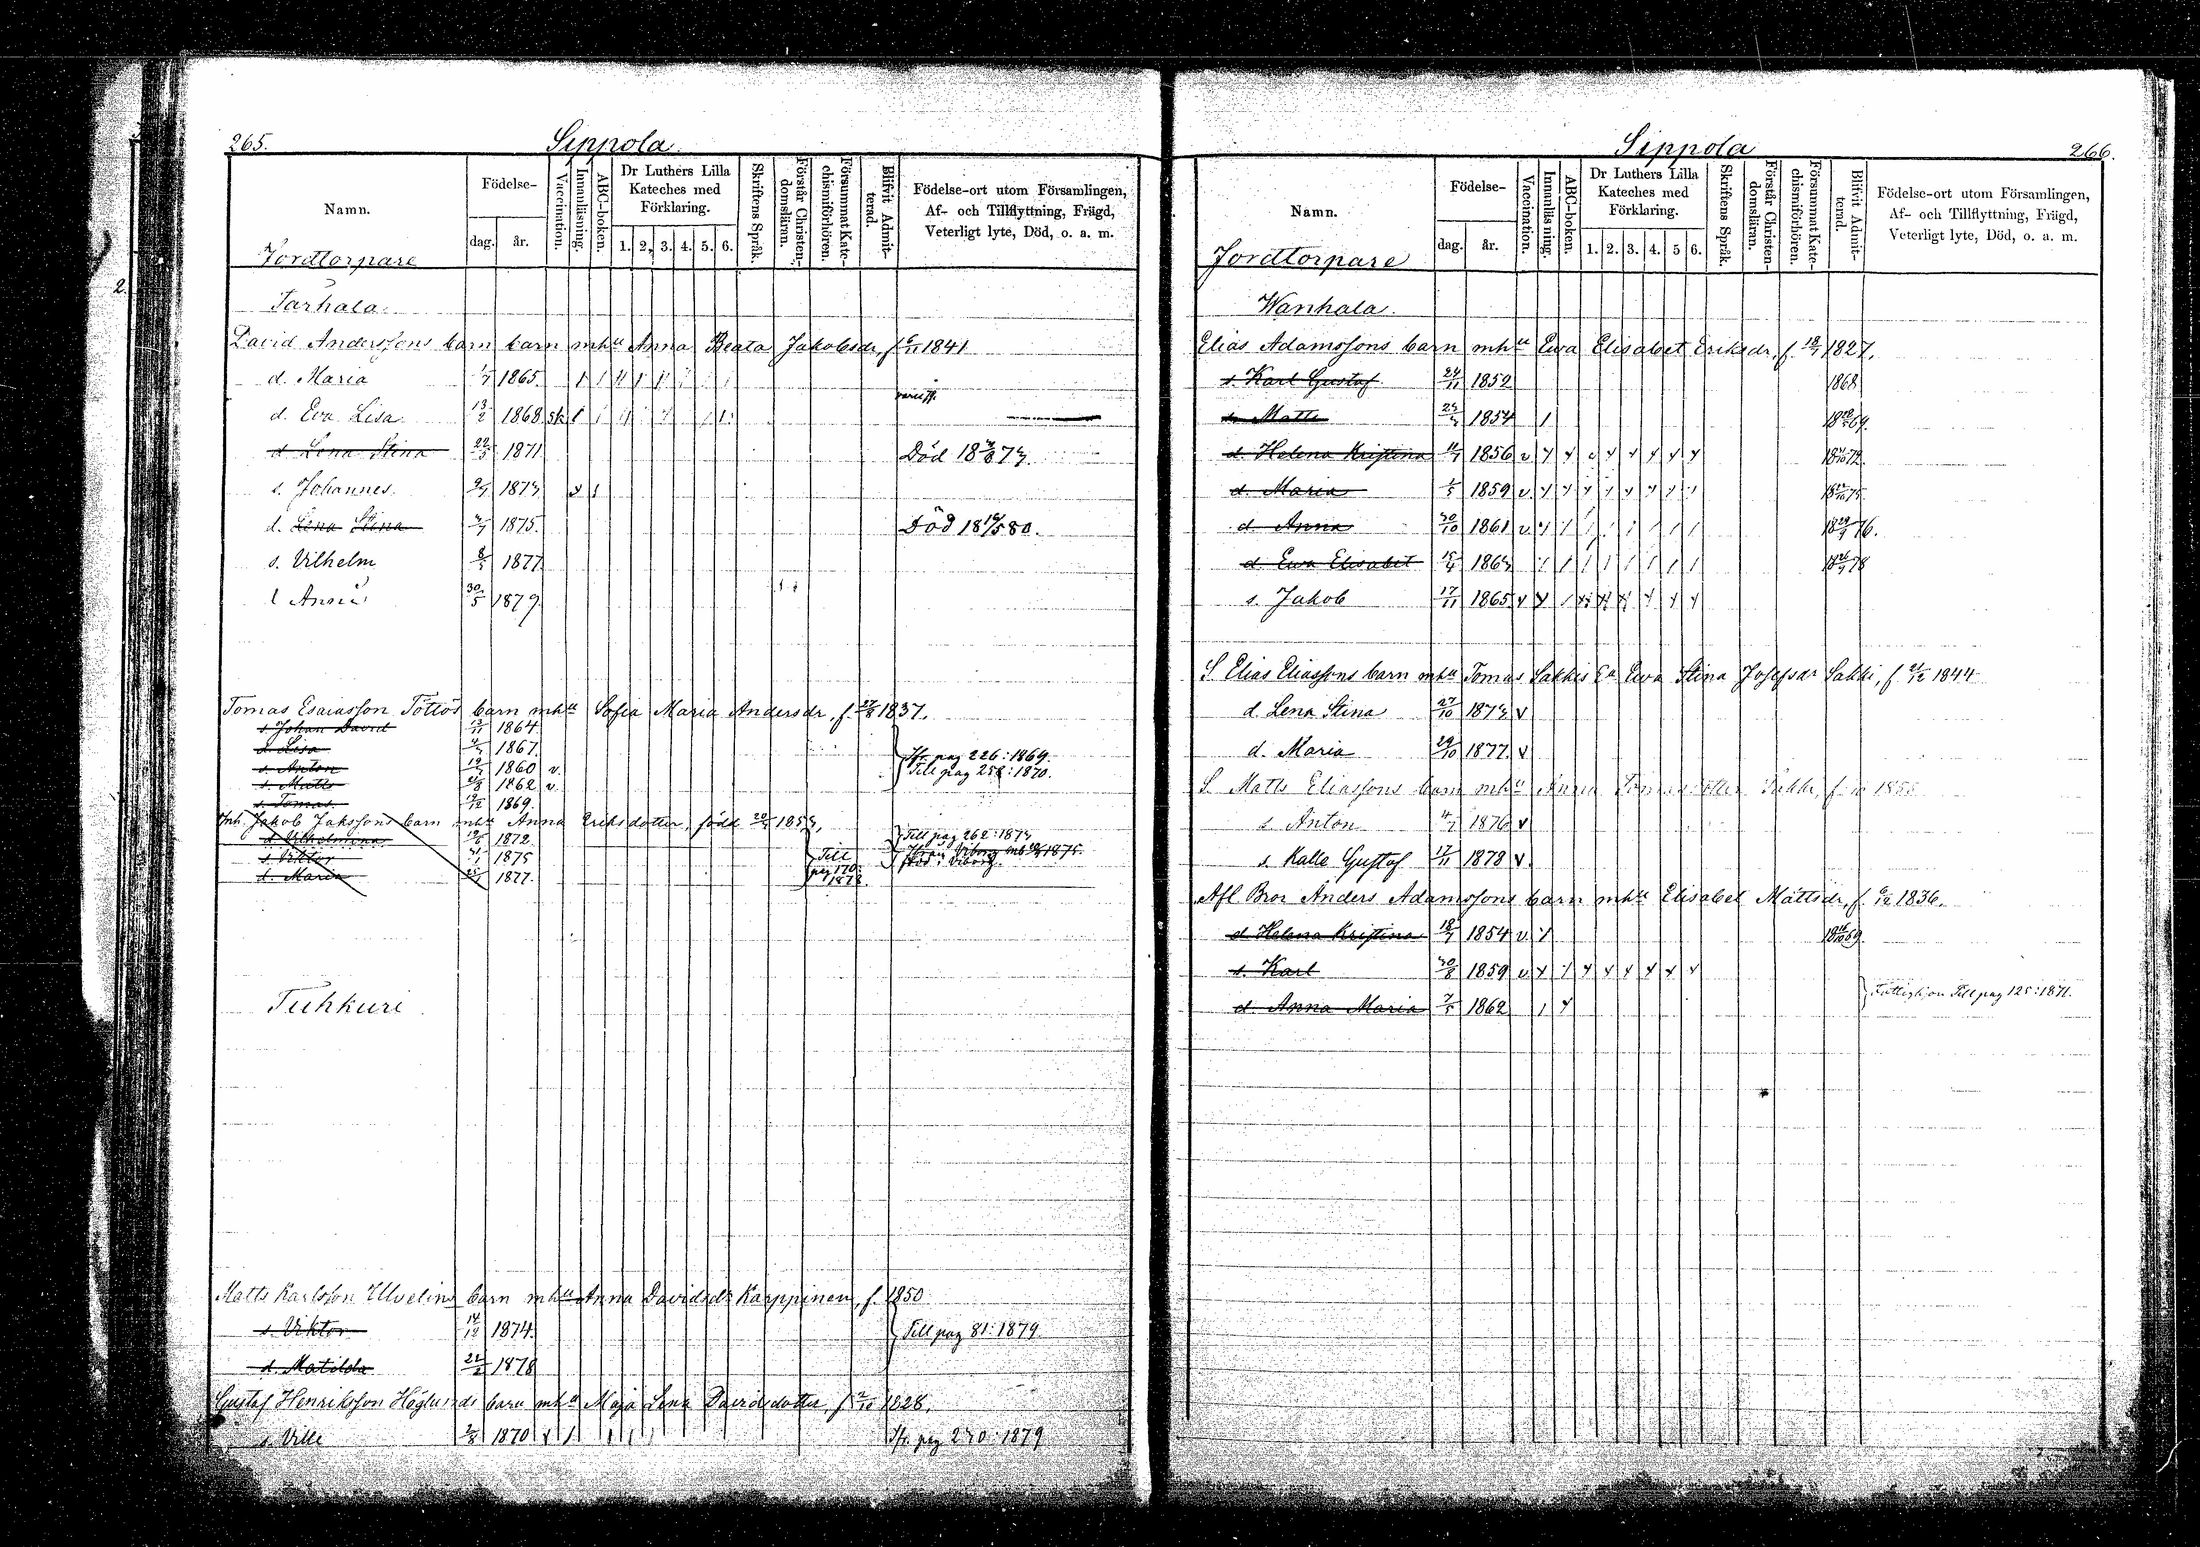 265.
Sippola
Namn.
Födelse-
dag.
år.
Vaccination.
Innanläsning.
ABC-boken.
Dr Luthers Lilla
Kateches med
Förklaring.
1. 2. 3. 4. 5. 6.
Skriftens Språk.
Förstår Christen-
domsläran.
Försummat Kate-
chismiförhören.
Blifvit Admit-
terad.
Födelse-ort utom Församlingen,
Af- och Tillflyttning, Frägd,
Veterligt lyte, Död, o. a. m.
Jordtorpare
Tarhala
David Anderssons barn barn mhu Anna Beata Jakobsdr, f. 6/11 1841
d. Maria 1865
d. Eva Lisa 13/2 1868 sk
d Lena Stina 22/5 1871 Död
s. Johannes. 1873
d. Lena Stina 1875. Död
s. Vilhelm 1877
Anna 30/5 1879
Tomas Esaiasson Töttös barn mhu Sofia Maria Andersdr. f. 27/8 1837.
s Johan David 13/11 1864
d. Lisa 1867.
s. Anton 1860 v. Ifr. pag 226: 1869.
s. Matts 1862 v. Till pag 1870.
s. Tomas 19/12 1869.
Inh. Jakob Jakssons barn mhu Anna Eriksdotter, född
d. Vilhelmina 1872 Till pag 262: 1873
s. Viktor 1875
d. Maria 1877. Till pag 170: 1878.
Tuhkuri
Matts Karlsson Ulvelins barn mhu Anna Davidsdr Karppinen, f. 1850
s. Viktor 14/12 1874. Till pag 81: 1879
d. Matilda 22/2 1878
Gustaf Henriksson Höglunds barn mhu Maja Lena Davidsdotter, f 2/10 1828.
s. Ville 1870 Ifr. pag 270: 1879
Sippola
266.
Namn.
Födelse-
dag.
år.
Vaccination.
Innanläsning.
ABC-boken.
Dr Luthers Lilla
Kateches med
Förklaring.
1. 2. 3. 4. 5 6.
Skriftens Språk.
Förstår Christen-
domsläran.
Försummat Kate-
chismiförhören.
Blifvit Admit-
terad.
Födelse-ort utom Församlingen,
Af- och Tillflyttning, Frägd,
Veterligt lyte, Död, o. a. m.
Jordtorpare
Wanhala.
Elias Adamssons barn mhu Ewa Elisabet Eriksdr, f. 18/7 1827.
s. Karl Gustaf 24/11 1852 1868
s. Matts 1854
d. Helena Kristina 1856 v
d. Maria 1/5 1859 v
d. Anna 30/10 1861 v
d. Ewa Elisabet 15/4 1863
s. Jakob 17/11 1865
S Elias Eliassons barn mhu Tomas Sakkis Ea Ewa Stina Josefsdr Sakki, f 21/12 1844
d Lena Stina 27/10 1873 v
d. Maria 29/10 1877. v
S. Matts Eliassons barn mhu Anna Tomasdotter Sakki, f.
s Anton 1876 v
s. Kalle Gustaf 17/11 1878 v.
Afl Bror Anders Adamssons barn mhu Elisabet Mattsdr, f. 6/12 1836.
d Helena Kristina 18/7 1854 v.
s. Karl 30/8 1859 v
d. Anna Maria 7/5 1862 Till pag 125: 1871.